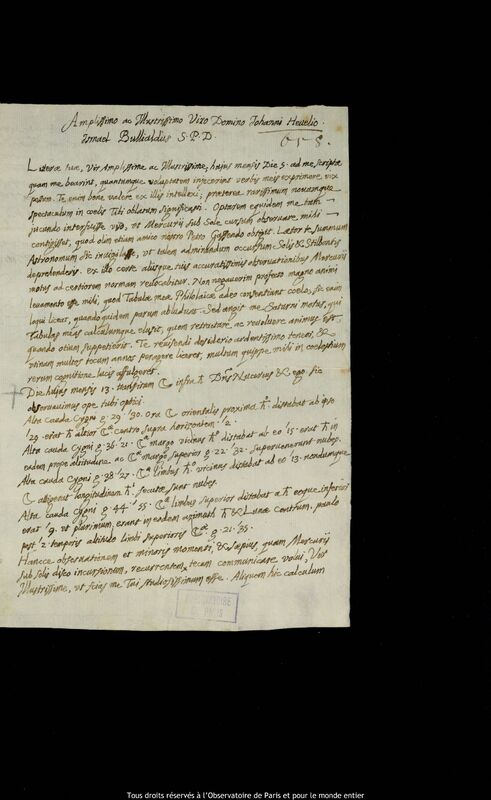 Amplissimo ac Illustrissimo Viro Domino Johanni Hevelio.
Ismael Bullialdus S.P.D.
Litterae tuae, Vir Amplissime ac Illustrissime, hujus mensis Die 5. ad me scriptae
quam me bearint, quantamque voluptatem injecerint verbis meis exprimere vix
possem. Te enim bene valere ex illis intellexi; praeterea rarissimum novumque
spectaculum in coelis Tibi oblatum significasti. Optarem equidem me tam
jucundo interfuisse, et Mercurii sub Sole cursum observare mihi
contigisset, quod olim etiam amico nostro Petro Gassendo obtigit. Laetor te summum
Astronomum sic invigilasse, ut tulem admirandum occursum Solis & Stilbontis
deprehenderis. ex illo certe aliisque tuis accuratissimis observationibus Mercurii
motus ad certiorem normam revocabitur. Non negaverim profecto magno animi
levamento esse mihi, quod Tabulae meae Philolaicae adeo consentiant coelo, sic enim
loqui liceat, quandoquidem parum abludunt. Sed angit me Saturni motus, qui
Tabulas meas calculumque elusit, quem retractare ac revolvere animus est,
quando otium suppetierit. Te revisendi desiderio ardentissimo teneor, &
utinam multos tecum annos peragere liceret, multum quippe mihi in coelestium
rerum cognitione lucis affulgeret.
Die hujus mensis 13. vespertina ☾ infra ♄ Dnus Nucerius & ego sic
observavimus ope tubi optici.
Alta cauda Cygni g. 29 '30. ora ☾ orientalis proxima ♄ distabat ab ipso
'29. erat ♄ altior ☾ae centro supra horizontem '2.
Alta cauda Cygni g. 36 '21. ☾ae margo vicinus ♄ distabat ab eo '15. erat ♄ in
eadem prope altitudine ac ☾ae margo superior g. 22 '32. supervenerunt nubes.
Alta cauda Cygni g. 38 '27. ☾ae limbus ♄ vicinus distabat ab eo '13. nondumque
☾ attigerat longitudinem ♄i. secutae sunt nubes.
Alta cauda Cygni g. 44 '55. ☾ae limbus superior distabat a ♄ eoque inferior
erat '9. ut plurimum, erant in eodem azimuth ♄ & Lunae centrum. paulo
post '2 temporis altitudo limbi superioris ☾ae g. 21. 35.
Hancce observationem et minoris momenti, & saepius, quam Mercurii
sub solis disco incursionum, recurrentem, tecum communicare volui, Vir
Illustrissime, ut scias me Tui studiosissimum esse. Aliquem hic calculum
OBSERVATOIRE
DE PARIS
Tous droits réservés à l'Observatoire de Paris et pour le monde entier